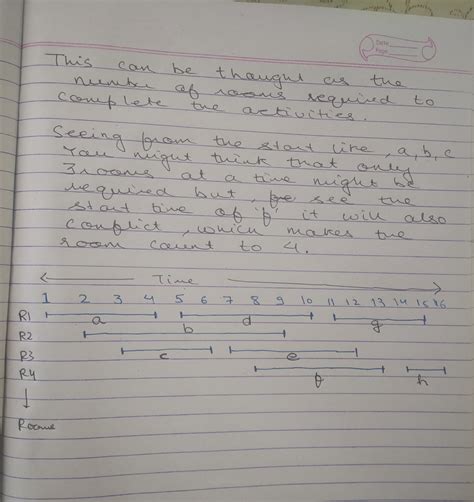 Date
Page
This can be thought as the
number of rooms required to
complete the activities.
Seeing from the start like, a, b, c
You might think that only
3 rooms at a time might be
required but, see the
start time of 'f' it will also
conflict, which makes the
room count to 4.
Time
1 2 3 4 5 6 7 8 9 10 11 12 13 14 15 16
R1 a d g
R2 b
R3 c e
R4 f h
Rooms